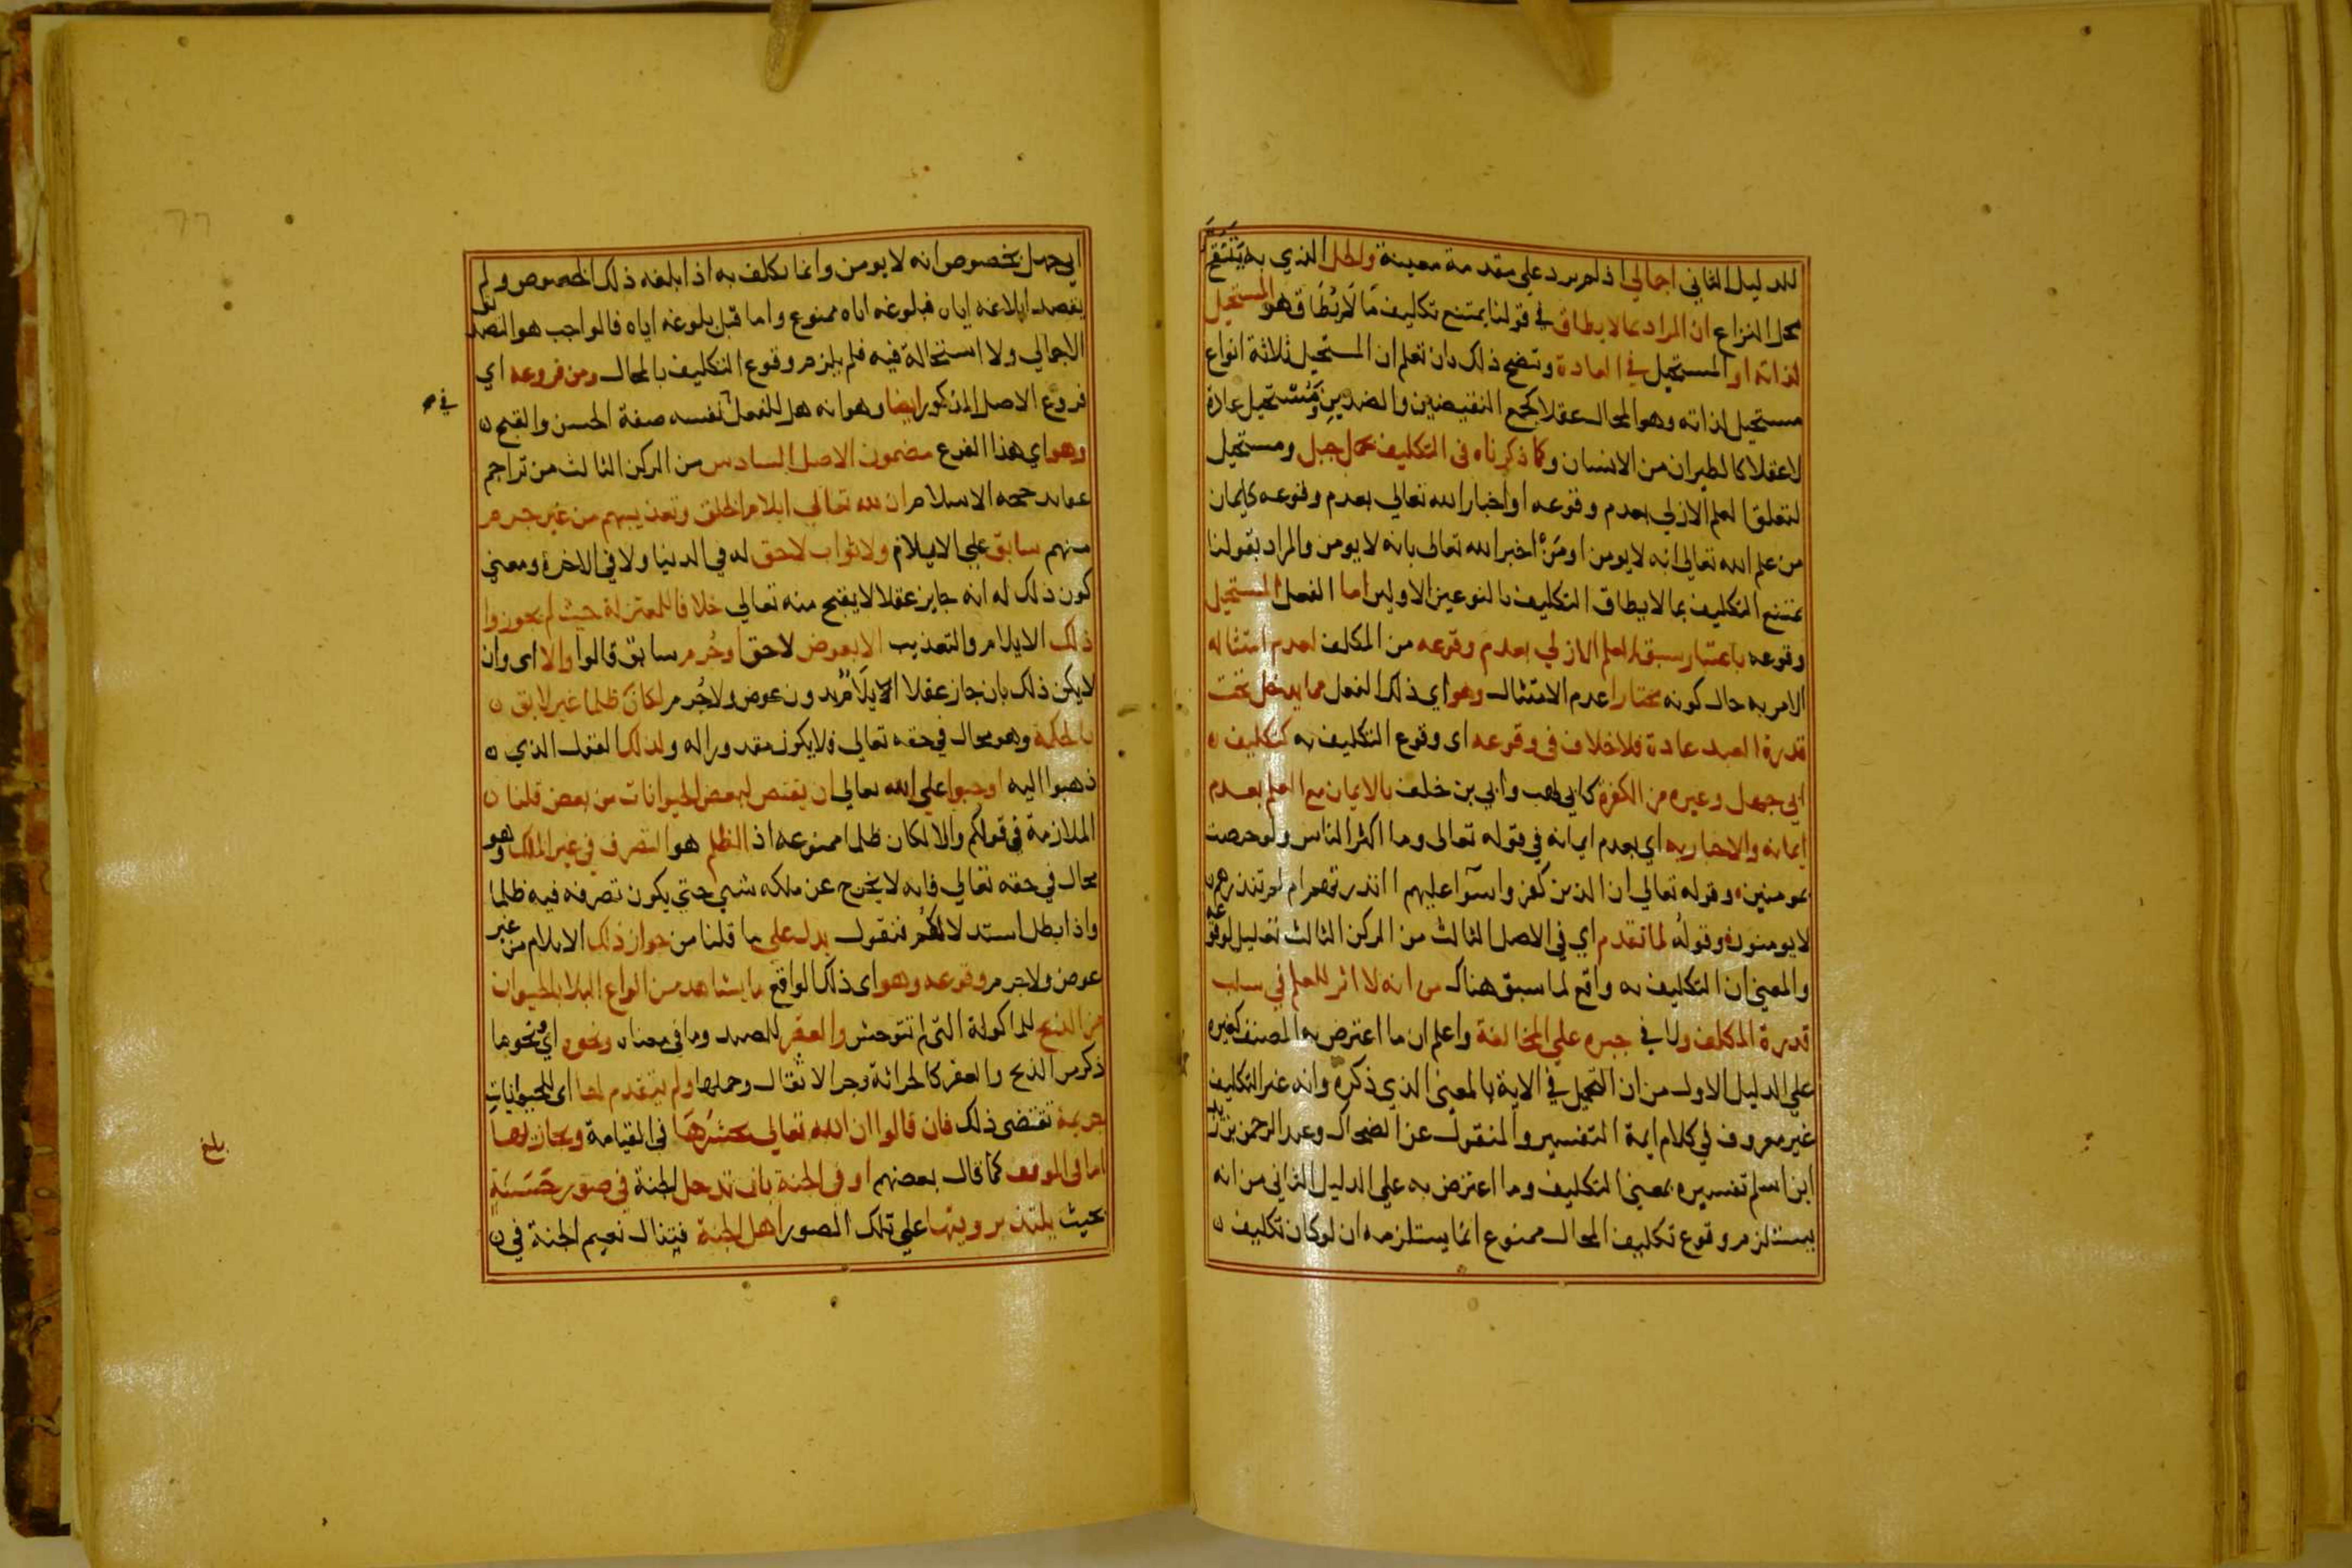 للدليل الثاني اجمالي اذ لم يرد علي مقدمة معينة والحل الذي به يتقرر
محل النزاع ان المراد بما لا يطاق في قولنا يمتنع تكليف ما لا يطاق هو المستحيل
لذاته او المستحيل في العادة وتضح ذلك بان تعلم ان المستحيل ثلاثة انواع
مستحيل لذاته وهو المحال عقلا كجمع النقيضين والضدين ومستحيل عادة
لا عقلا كالطيران من الانسان وكما ذكرناه في التكليف بحمل جبل ومستحيل
لتعلق العلم الازلي بعدم وقوعه او اخبار الله تعالي بعدم وقوعه كايمان
من علم الله تعالي انه لا يومن او من اخبر الله تعالى بانه لا يومن والمراد بقولنا
يمتنع التكليف بما لا يطاق التكليف بالنوعين الاولين اما الفعل المستحيل
وقوعه باعتبار سبق العلم الازلي بعدم وقوعه من المكلف لعدم امتثاله
الامر به حال كونه مختارا عدم الامتثال وهو اي ذلك الفعل مما يدخل تحت
قدرة العبد عادة فلا خلاف في وقوعه اى وقوع التكليف به كتكليف
ابي جهل وغيره من الكفرة كابي لهب وابي بن خلف بالايمان مع العلم بعدم
ايمانه والاخبار به اي بعدم ايمانه في قوله تعالى وما اكثر الناس ولو حرصت
بمومنين وقوله تعالي ان الذين كفروا سوآ عليهم ااانذرتهم ام لم تنذرهم
لا يومنون وقوله لما تقدم اي في الاصل الثالث من الركن الثالث تعليل لوقوعه
والمعني ان التكليف به واقع لما سبق هناك من انه لا اثر للعلم في سلب
قدرة المكلف ولا في جبره علي المخالفة واعلم ان ما اعترض به المصنف كغيره
علي الدليل الاول من ان التحميل في الاية بالمعنى الذي ذكره وانه غير التكليف
غير معروف في كلام ايمة التفسير والمنقول عن الضحاك وعبد الرحمن بن زيد
ابن اسلم تفسيره بمعني التكليف وما اعترض به علي الدليل الثاني من انه
يستلزم وقوع تكليف المحال ممنوع انما يستلزمه ان لو كان تكليف
ابي جهل بخصوص انه لا يومن وانما يكلف به اذا ابلغه ذلك الخصوص ولم
يقصد ابلاغه اياه فبلوغه اياه ممنوع واما قبل بلوغه اياه فالواجب هو التصديق
الاجمالي ولا استحالة فيه فلم يلزم وقوع التكليف بالمحال ومن فروعه اي
فروع الاصل المذكور ايضا وهو انه هل للفعل في نفسه صفة الحسن والقبح
وهو اي هذا الفرع مضمون الاصل السادس من الركن الثالث من تراجم
عقايد حجة الاسلام ان لله تعالي ايلام الخلق وتعذيبهم من غير جرم
منهم سابق علي الايلام ولا ثواب لاحق له في الدنيا ولا في الاخرة ومعني
كون ذلك له انه جايز عقلا لا يقبح منه تعالي خلافا للمعتزلة حيث لم يجوزوا
ذلك الايلام والتعذيب الا بعوض لاحق او جرم سابق قالوا والا اى وان
لا يكن ذلك بان جاز عقلا الايلام بدون عوض ولا جرم لكان ظلما غير لايق
بالحكمة وهو محال في حقه تعالي فلا يكون مقدورا له ولذلك القول الذي
ذهبوا اليه اوجبوا علي الله تعالى ان يقتص لبعض الحيوانات من بعض قلنا
الملازمة في قولكم والا لكان ظلما ممنوعة اذ الظلم هو التصرف في غير الملك وهو
محال في حقه تعالي فانه لا يخرج عن ملكه شي حتي يكون تصرفه فيه ظلما
واذا بطل استدلالكم فنقول يدل علي ما قلنا من جواز ذلك الايلام من غير
عوض ولا جرم وقوعه وهو اى ذلك الواقع ما يشاهد من انواع البلا بالحيوان
من الذبح للماكولة التي لم تتوحش والعقر للصيد وما في معناه ونحوه اي نحو ما
ذكر من الذبح والعقر كالحراثة وجر الاثقال وحملها ولم يتقدم لها اى للحيوانات
جريمة تقتضي ذلك فان قالوا ان الله تعالي يحشرها في القيامة ويجازيها
اما في الموقف كما قال بعضهم او في الجنة بان تدخل الجنة في صور حسنة
بحيث يلتذ برويتها علي تلك الصور اهل الجنة فتنال نعيم الجنة في
في
بلغ